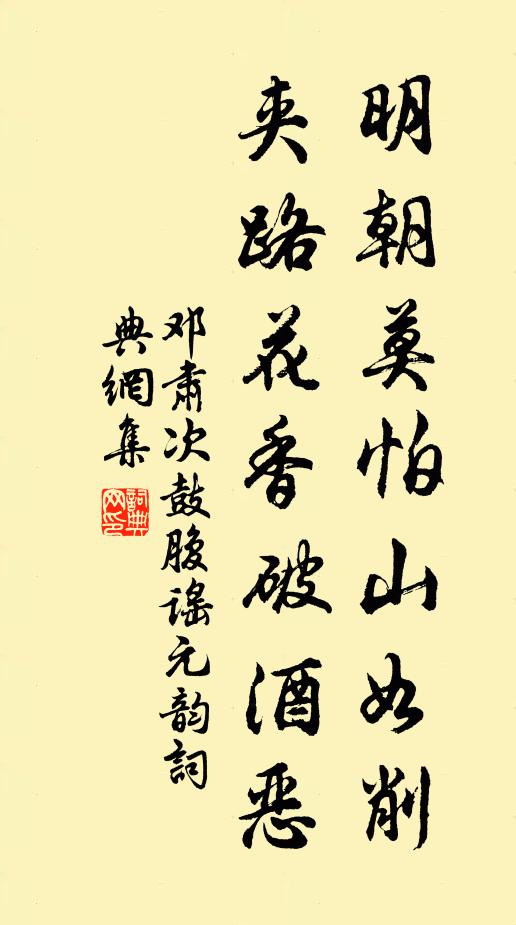 明朝莫怕山如削
夹路花香破酒恶
邓肃次鼓腹谣元韵詞
典網集
詞典
网印